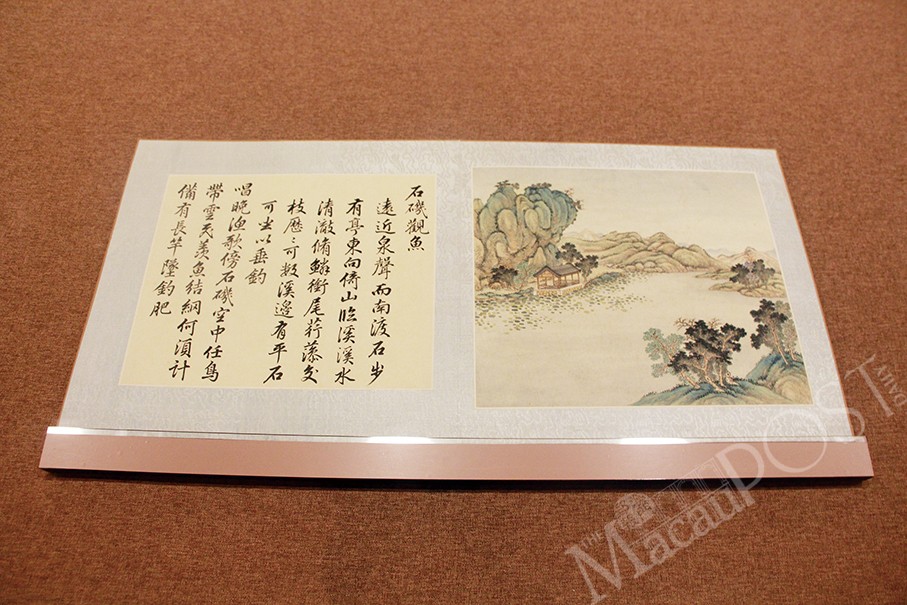 石磯觀魚
遠近泉聲而南渡石步
有亭東向倚山臨溪溪水
清澈脩鱗銜尾荇藻交
枝歷〻可數溪邊有平石
可坐以垂釣
唱晚漁歌傍石磯空中任鳥
帶雲飛羨魚結網何須計
備有長竿墜釣肥
THE Macau POST DAILY